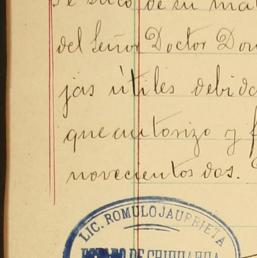 se sacó de su ma
del Señor Doctor Don
jas útiles debida
que autorizo y f
novecientos dos.
LIC. ROMULO JAURRIETA
ESTADO DE CHIHUAHUA